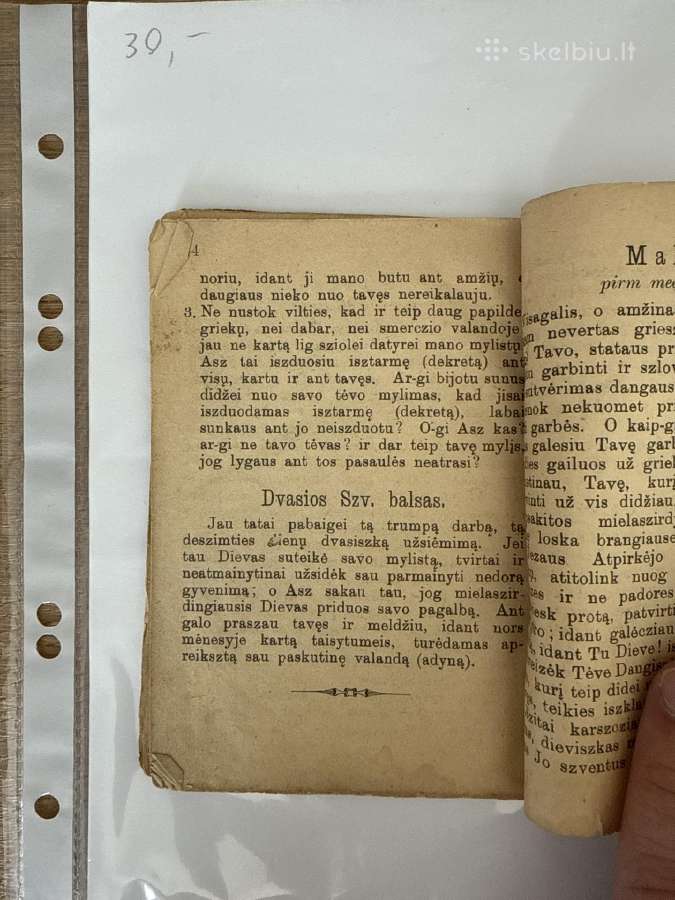 30,-
skelbiu.lt
4
noriu, idant ji mano butu ant amžių,
daugiaus nieko nuo tavęs nereikalauju.
3. Ne nustok vilties, kad ir teip daug papilde
griekų, nei dabar, nei smerczio valandoje
jau ne kartą lig sziolei datyrei mano mylistų
Asz tai iszduosiu isztarmę (dekretą) ant
visų, kartu ir ant tavęs. Ar-gi bijotu sunus
didžei nuo savo tėvo mylimas, kad jisai
iszduodamas isztarmę (dekretą), labai
sunkaus ant jo neiszduotu? O-gi Asz kas?
ar-gi ne tavo tėvas? ir dar teip tavę mylįs,
jog lygaus ant tos pasaulės neatrasi?
Dvasios Szv. balsas.
Jau tatai pabaigei tą trumpą darbą, tą
deszimties dienų dvasiszką užsiėmimą. Jei
tau Dievas suteikė savo mylistą, tvirtai ir
neatmainytinai užsidėk sau parmainyti nedorą
gyvenimą; o Asz sakau tau, jog mielaszir-
dingiausis Dievas priduos savo pagalbą. Ant
galo praszau tavęs ir meldžiu, idant nors
mėnesyje kartą taisytumeis, turėdamas ap-
reiksztą sau paskutinę valandą (adyną).
Mal
pirm med
isagalis, o amžina
nevertas griesz
Tavo, stataus pr
garbinti ir szlov
tvėrimas dangaus
nekuomet pr
garbės. O kaip-g
galesiu Tavę garb
gailuos už griek
Tavę, kurį
už vis didžiau
mielaszirdj
loska brangiause
Atpirkėjo
atitolink nuog
ir ne padores
protą, patvirti
idant galėcziau
idant Tu Dieve! is
Tėve Dangis
kurį teip didei
teikies iszkla
karszozia
dieviszkas
Jo szventus